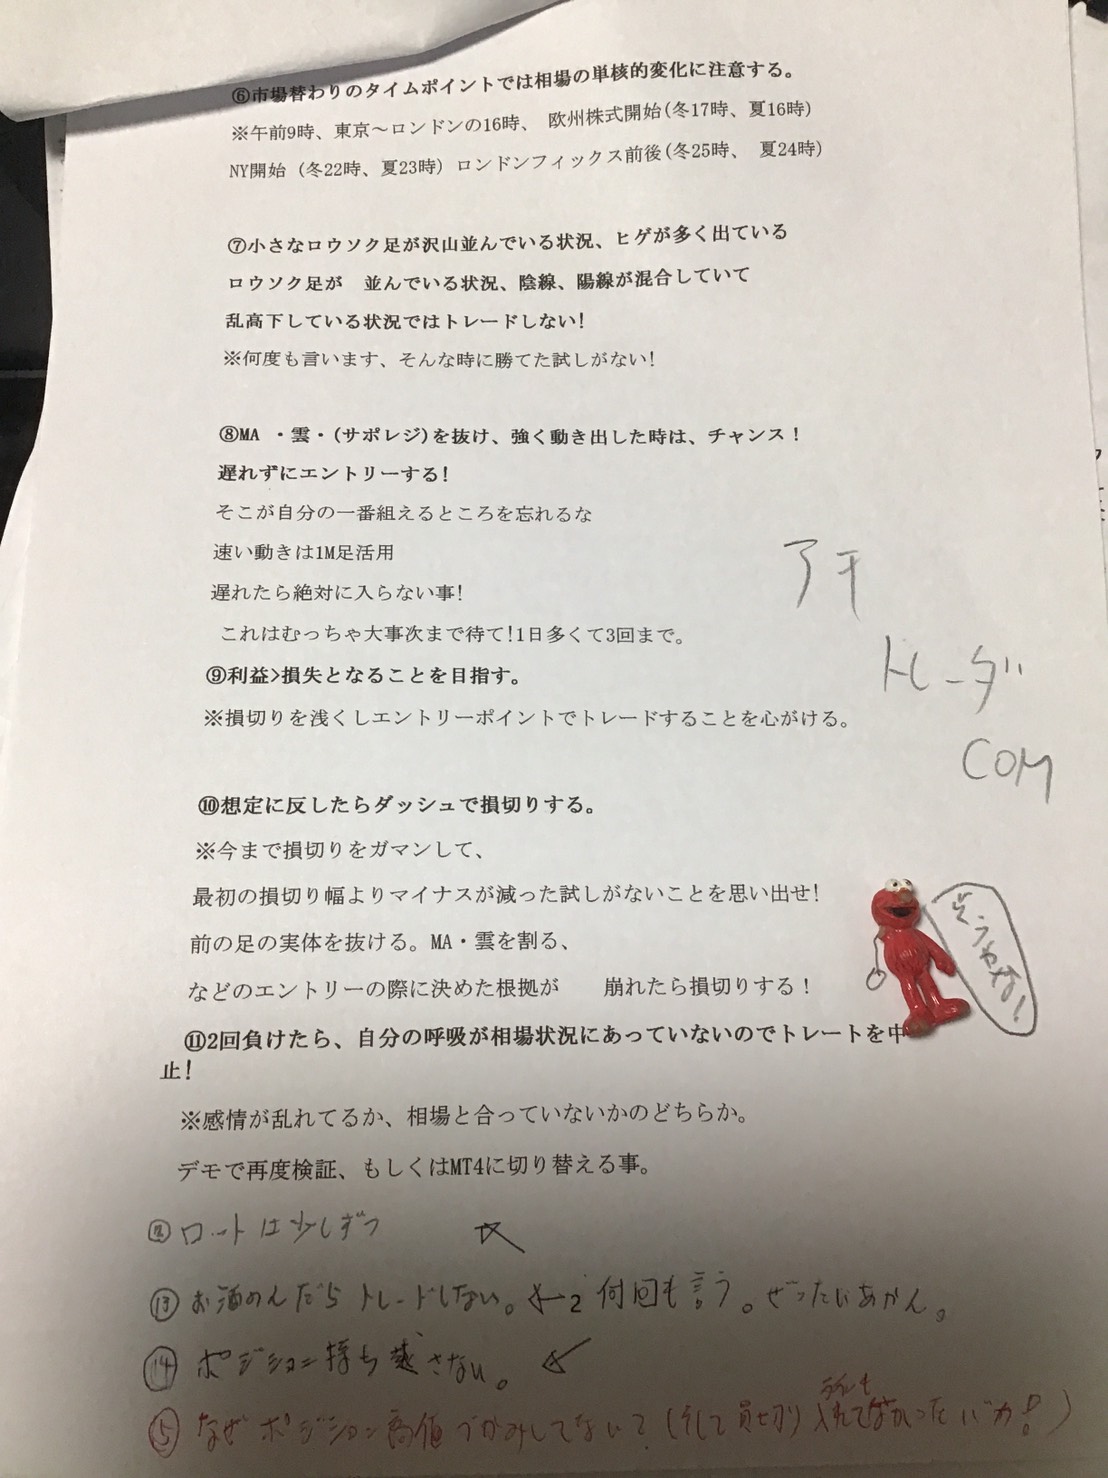 ⑥市場替わりのタイムポイントでは相場の単核的変化に注意する。
※午前9時、東京～ロンドンの16時、 欧州株式開始(冬17時、夏16時)
NY開始 (冬22時、夏23時) ロンドンフィックス前後(冬25時、 夏24時)
⑦小さなロウソク足が沢山並んでいる状況、ヒゲが多く出ている
ロウソク足が 並んでいる状況、陰線、陽線が混合していて
乱高下している状況ではトレードしない!
※何度も言います、そんな時に勝てた試しがない!
⑧MA ・雲・(サポレジ)を抜け、強く動き出した時は、チャンス!
遅れずにエントリーする!
そこが自分の一番組えるところを忘れるな
速い動きは1M足活用
遅れたら絶対に入らない事!
これはむっちゃ大事次まで待て!1日多くて3回まで。
⑨利益>損失となることを目指す。
※損切りを浅くしエントリーポイントでトレードすることを心がける。
トレーダ
COM
⑩想定に反したらダッシュで損切りする。
※今まで損切りをガマンして、
最初の損切り幅よりマイナスが減った試しがないことを思い出せ!
前の足の実体を抜ける。MA・雲を割る、
などのエントリーの際に決めた根拠が 崩れたら損切りする!
そうやな!
⑪2回負けたら、自分の呼吸が相場状況にあっていないのでトレートを中
止!
※感情が乱れてるか、相場と合っていないかのどちらか。
デモで再度検証、もしくはMT4に切り替える事。
⑫ロットは少しずつ
⑬お酒のんだらトレードしない。←2 何回も言う。ぜったいあかん。
⑭ポジション持ち越さない。←
⑤なぜポジション高値づかみしてない?(そして損切り入れてなかったバカ!)